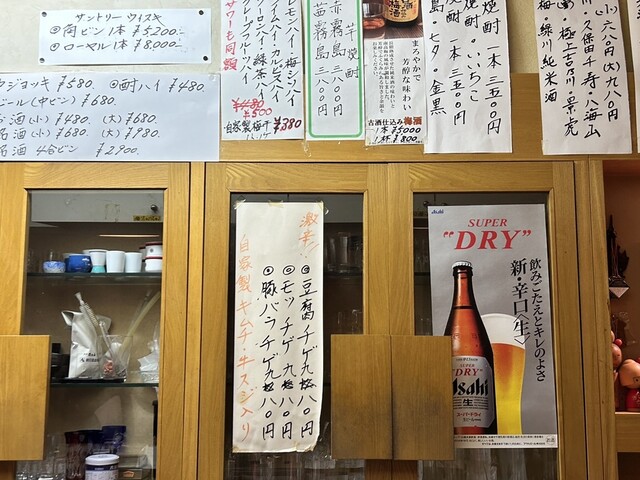 サントリーウイスキー
◎角ビン1本 ¥5200
◎ローヤル1本 ¥8,000
ジョッキ ¥580 ◎酎ハイ ¥480
ビール(中ビン) ¥680
酒(小) ¥480 (大) ¥680
酒(小) ¥680 (大) ¥980
酒 4合ビン ¥2900
サワーも同額
レモンハイ・梅シソハイ
ライムハイ・カルピスハイ
緑茶ハイ
¥480
¥500
自家製梅干 ¥380
芋焼酎
赤霧島 三八〇〇円
茜霧島 三八〇〇円
梅酒
まろやかで
芳醇な味わい
古酒仕込み梅酒
1本¥5000
1杯¥800
焼酎 一本 三五〇〇円
いいちこ
焼酎 一本 三五〇〇円
島・七夕・金黒
(小)六八〇円(大)九八〇円
久保田千寿・八海山
極上吉乃川・景虎
梅・緑川純米酒
激辛!!
◎豆腐チゲ 九八〇円
◎モツチゲ 九八〇円
◎豚バラチゲ 九八〇円
自家製キムチ・牛スジ入り
Asahi
SUPER
"DRY"
飲みごたえとキレのよさ
新・辛口〈生〉
SUPER
"DRY"
Asahi
生
スーパードライ